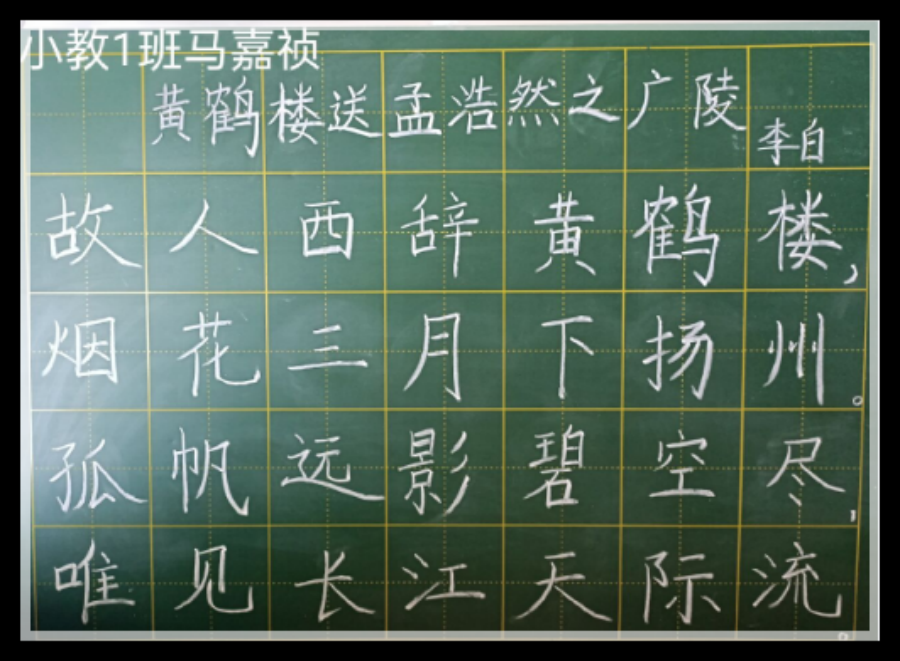 小教1班马嘉祯
黄鹤楼送孟浩然之广陵
李白
故人西辞黄鹤楼，
烟花三月下扬州。
孤帆远影碧空尽，
唯见长江天际流。